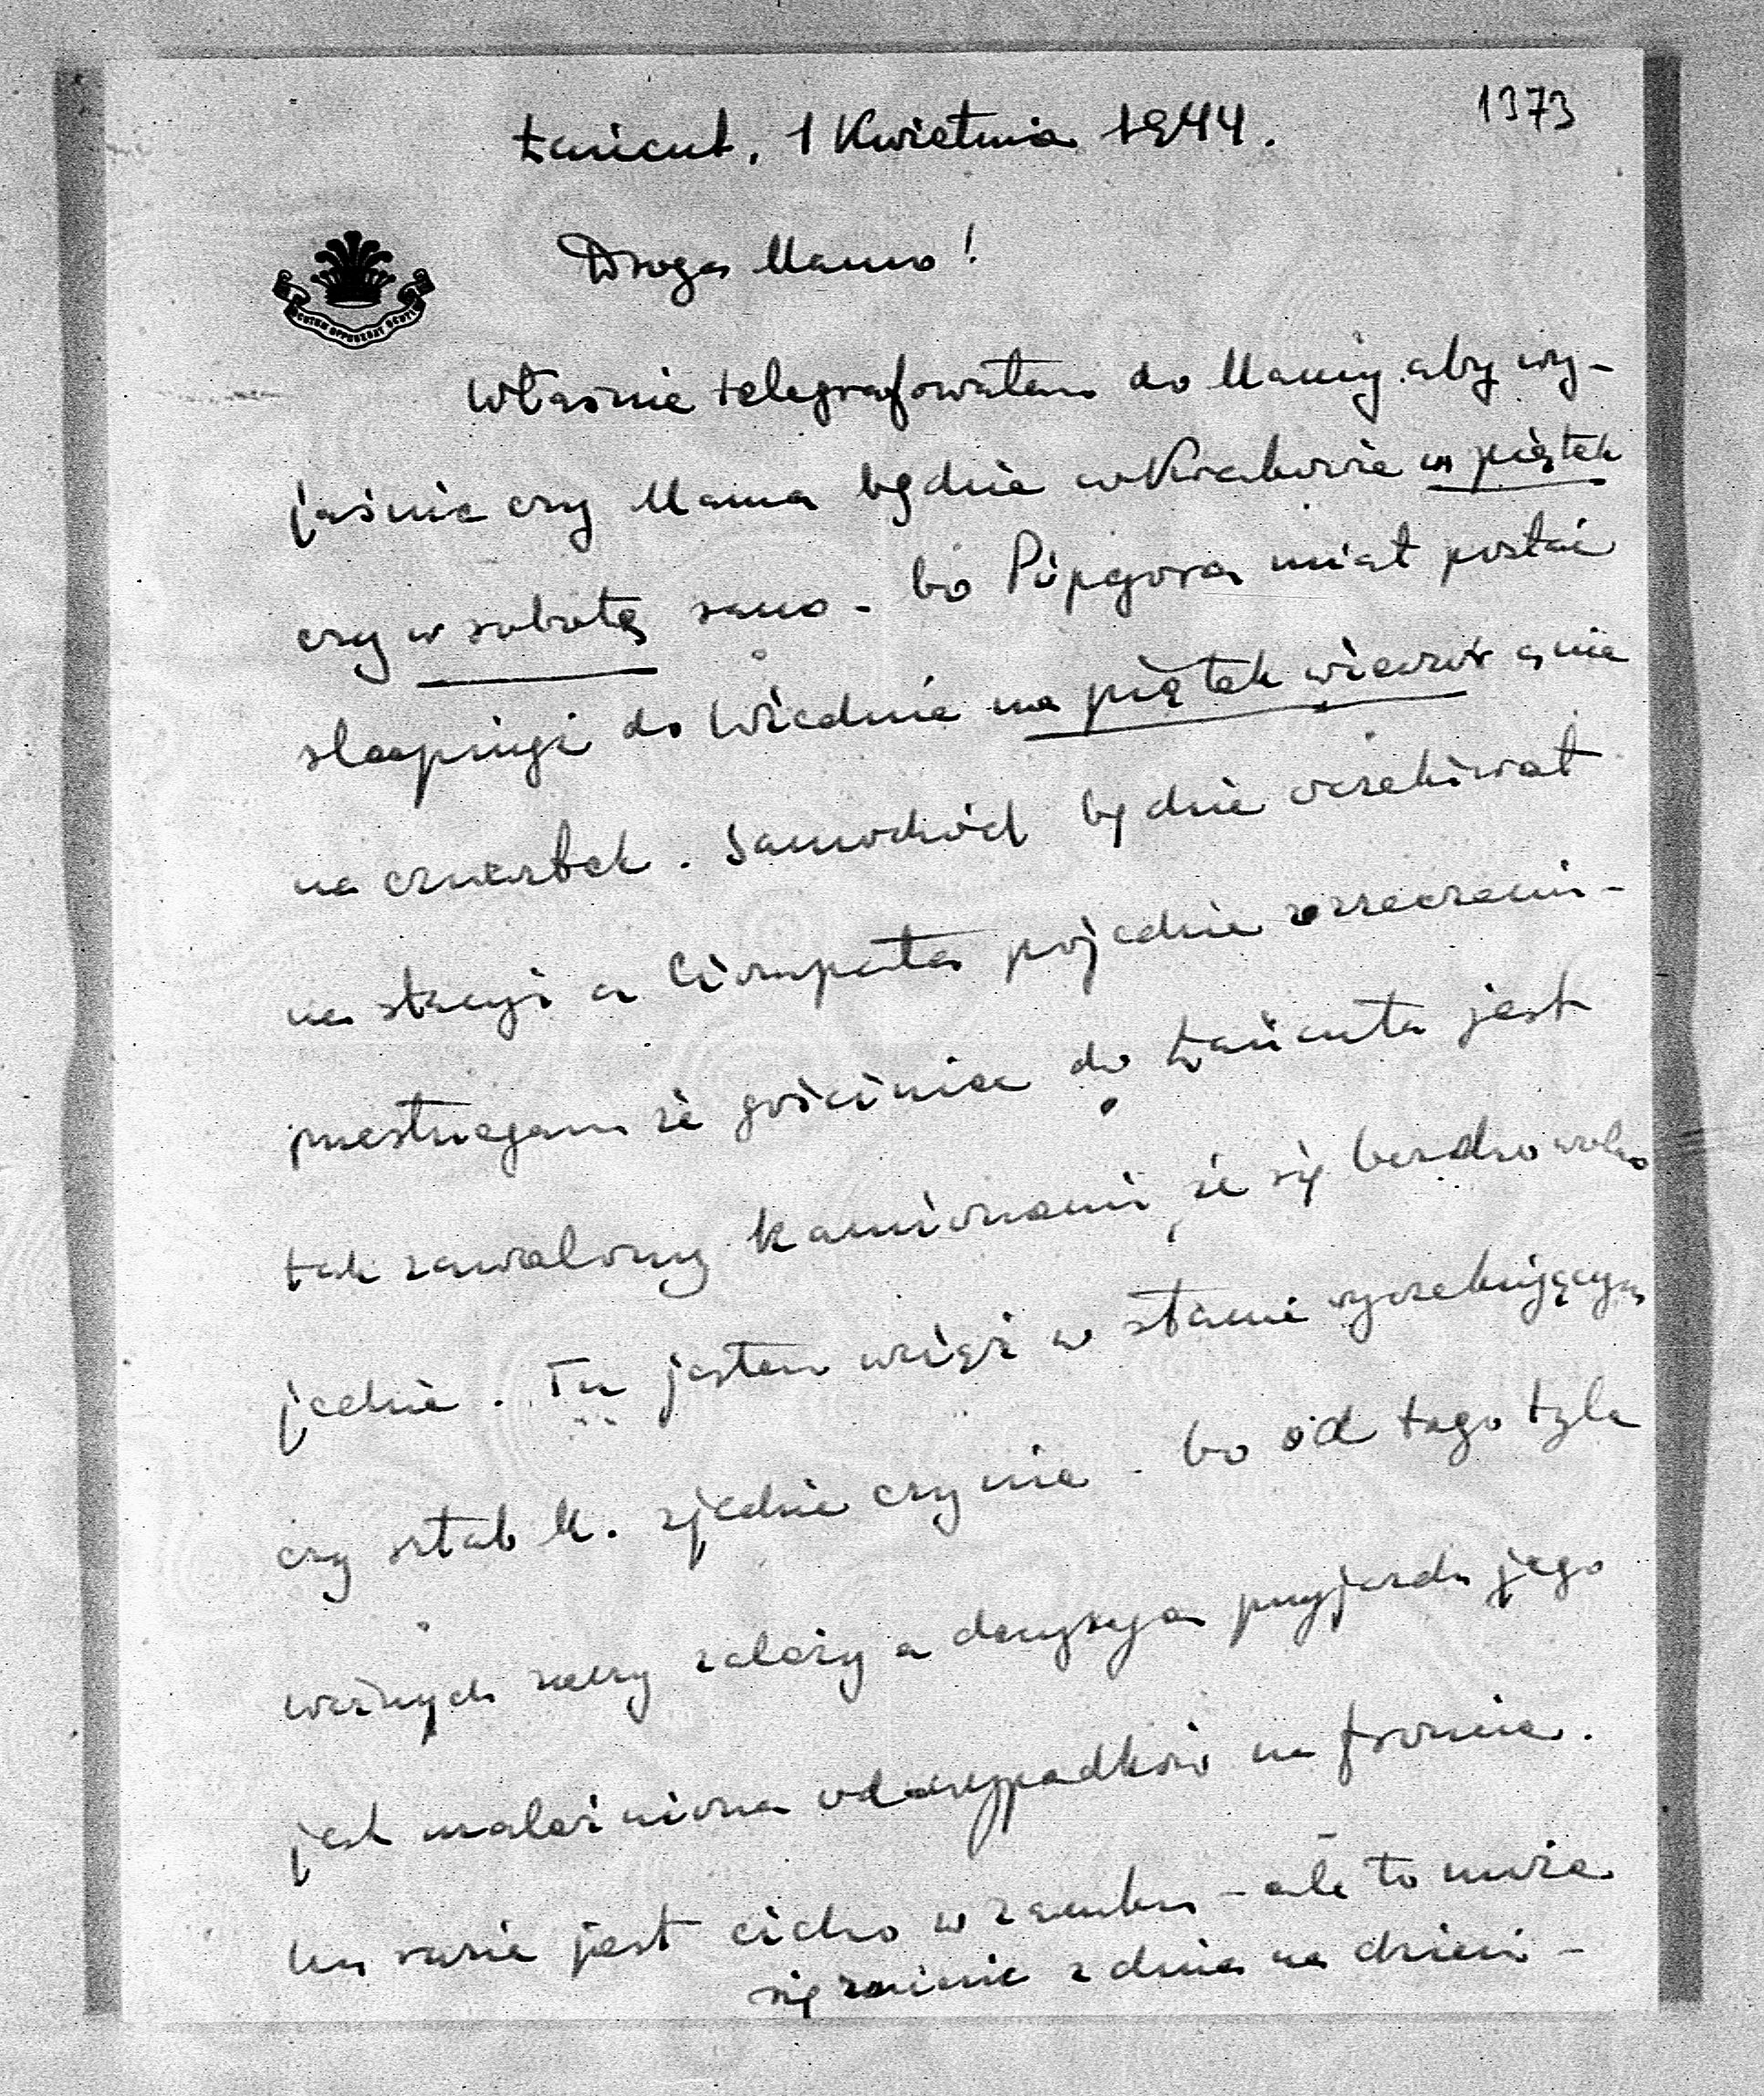 1373
Łańcut, 1 Kwietnia 1944.
Droga Mamo!
Właśnie telegrafowałem do Mamy aby wy-
jaśnić czy Mama będzie w Krakowie w piątek
czy w sobotę rano - bo Pipgora miał postać
sleepingi do Wiednia na piątek wieczór a nie
na czwartek. Samochód będzie oczekiwał
na stacyi a Ciompała pojedzie
że gościniec do Łańcuta jest
tak zawalony kamionami, że się bardzo wolno
jedzie. Tu jestem wciąż w stanie wyczekującym
czy sztab M. zjedzie czy nie - bo od tego tyle
ważnych rzeczy zależy a decyzya przyjazdu jego
jest uzależniona od wypadków na froncie.
Na razie jest cicho w zamku - ale to może
się zmienić z dnia na dzień -